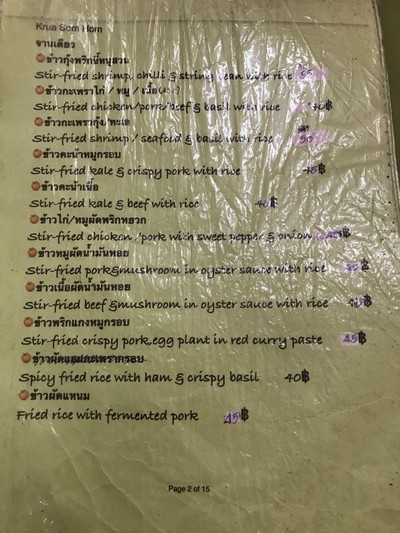 Krua Som Horn
จานเดียว
ข้าวกุ้งพริกขี้หนูสวน
Stir-fried shrimp, chilli & string bean with rice
ข้าวกะเพราไก่ / หมู / เนื้อ
Stir-fried chicken/pork/beef & basil with rice
ข้าวกะเพรากุ้ง/ทะเล
Stir-fried shrimp / seafood & basil with rice
ข้าวคะน้าหมูกรอบ
Stir-fried kale & crispy pork with rice 45฿
ข้าวคะน้าเนื้อ
Stir-fried kale & beef with rice 45฿
ข้าวไก่/หมูผัดพริกหยวก
Stir-fried chicken /pork with sweet pepper & onion ฿
ข้าวหมูผัดน้ำมันหอย
Stir-fried pork&mushroom in oyster sauce with rice ฿
ข้าวเนื้อผัดน้ำมันหอย
Stir-fried beef &mushroom in oyster sauce with rice 45฿
ข้าวพริกแกงหมูกรอบ
Stir-fried crispy pork,egg plant in red curry paste 45฿
Spicy fried rice with ham & crispy basil 40฿
ข้าวผัดแหนม
Fried rice with fermented pork 45฿
Page 2 of 15